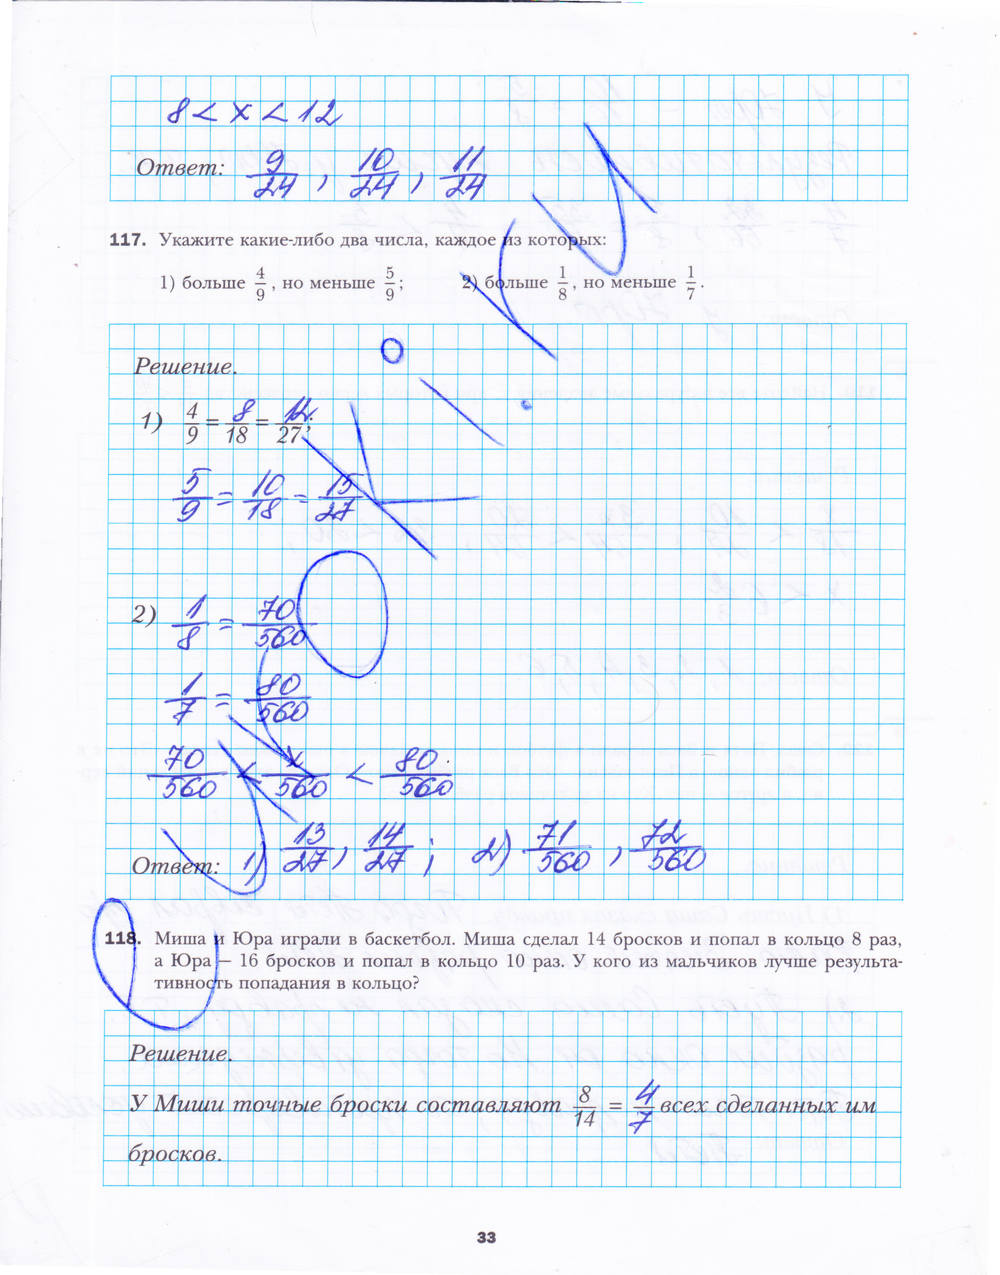 8 < x < 12
Ответ: 9/24, 10/24, 11/24
117. Укажите какие-либо два числа, каждое из которых:
1) больше 4/9, но меньше 5/9; 2) больше 1/8, но меньше 1/7.
Решение.
1) 4/9 = 8/18 = 12/27;
5/9 = 10/18 = 15/27
2) 1/8 = 70/560
1/7 = 80/560
70/560 < x/560 < 80/560
Ответ: 1) 13/27, 14/27; 2) 71/560, 72/560
118. Миша и Юра играли в баскетбол. Миша сделал 14 бросков и попал в кольцо 8 раз,
а Юра — 16 бросков и попал в кольцо 10 раз. У кого из мальчиков лучше результа-
тивность попадания в кольцо?
Решение.
У Миши точные броски составляют 8/14 = 4/7 всех сделанных им
бросков.
33